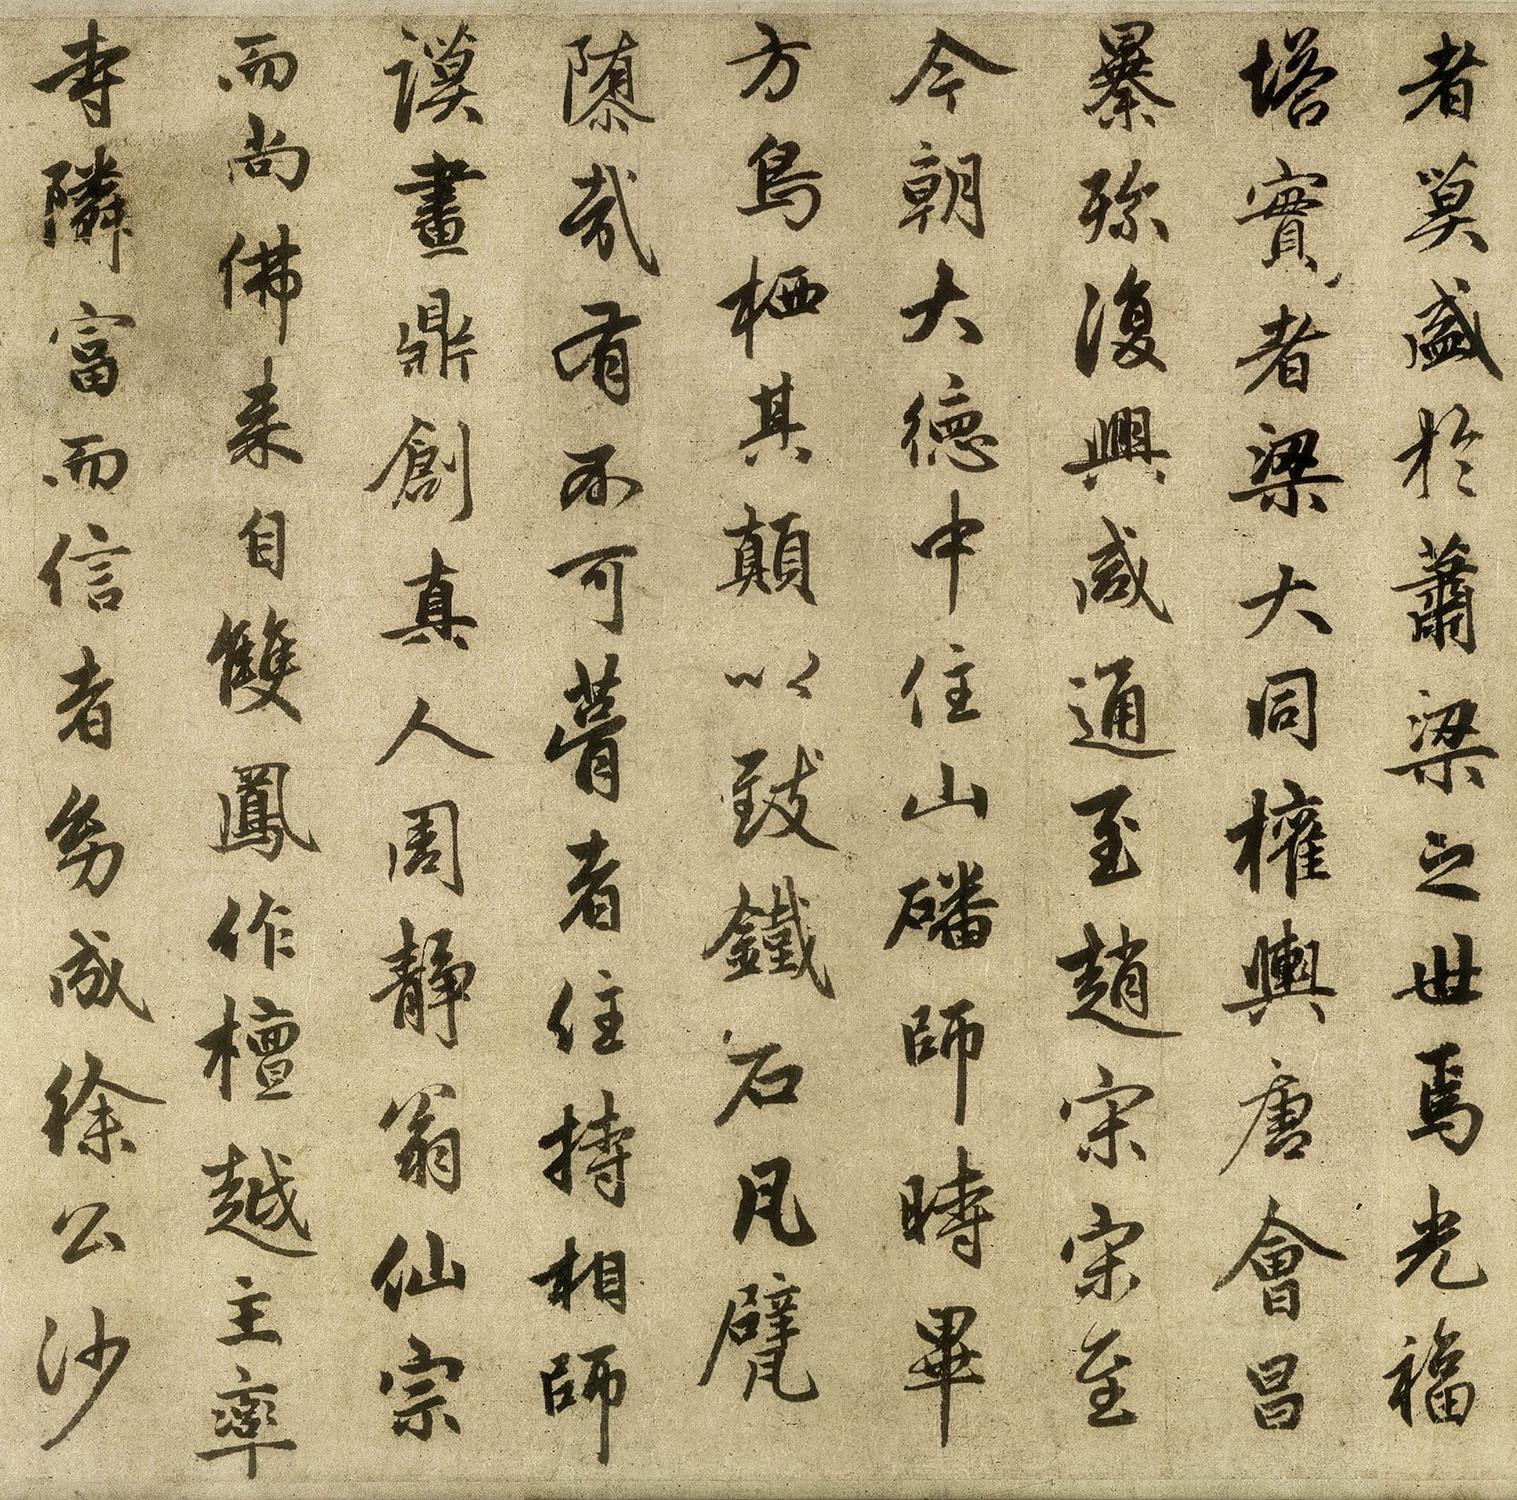 者莫盛於蕭梁之世焉光福
塔實者梁大同權輿唐會昌
㬥殄復興咸通至趙宋宋至
今朝大德中住山磻師時畢
方鳥栖其顛以致鐵石凡甓
隳哉有不可葺者住持相師
謨畫鼎創真人周靜翁仙宗
而尚佛来自雙鳳作檀越主率
寺隣富而信者勞成徐公沙